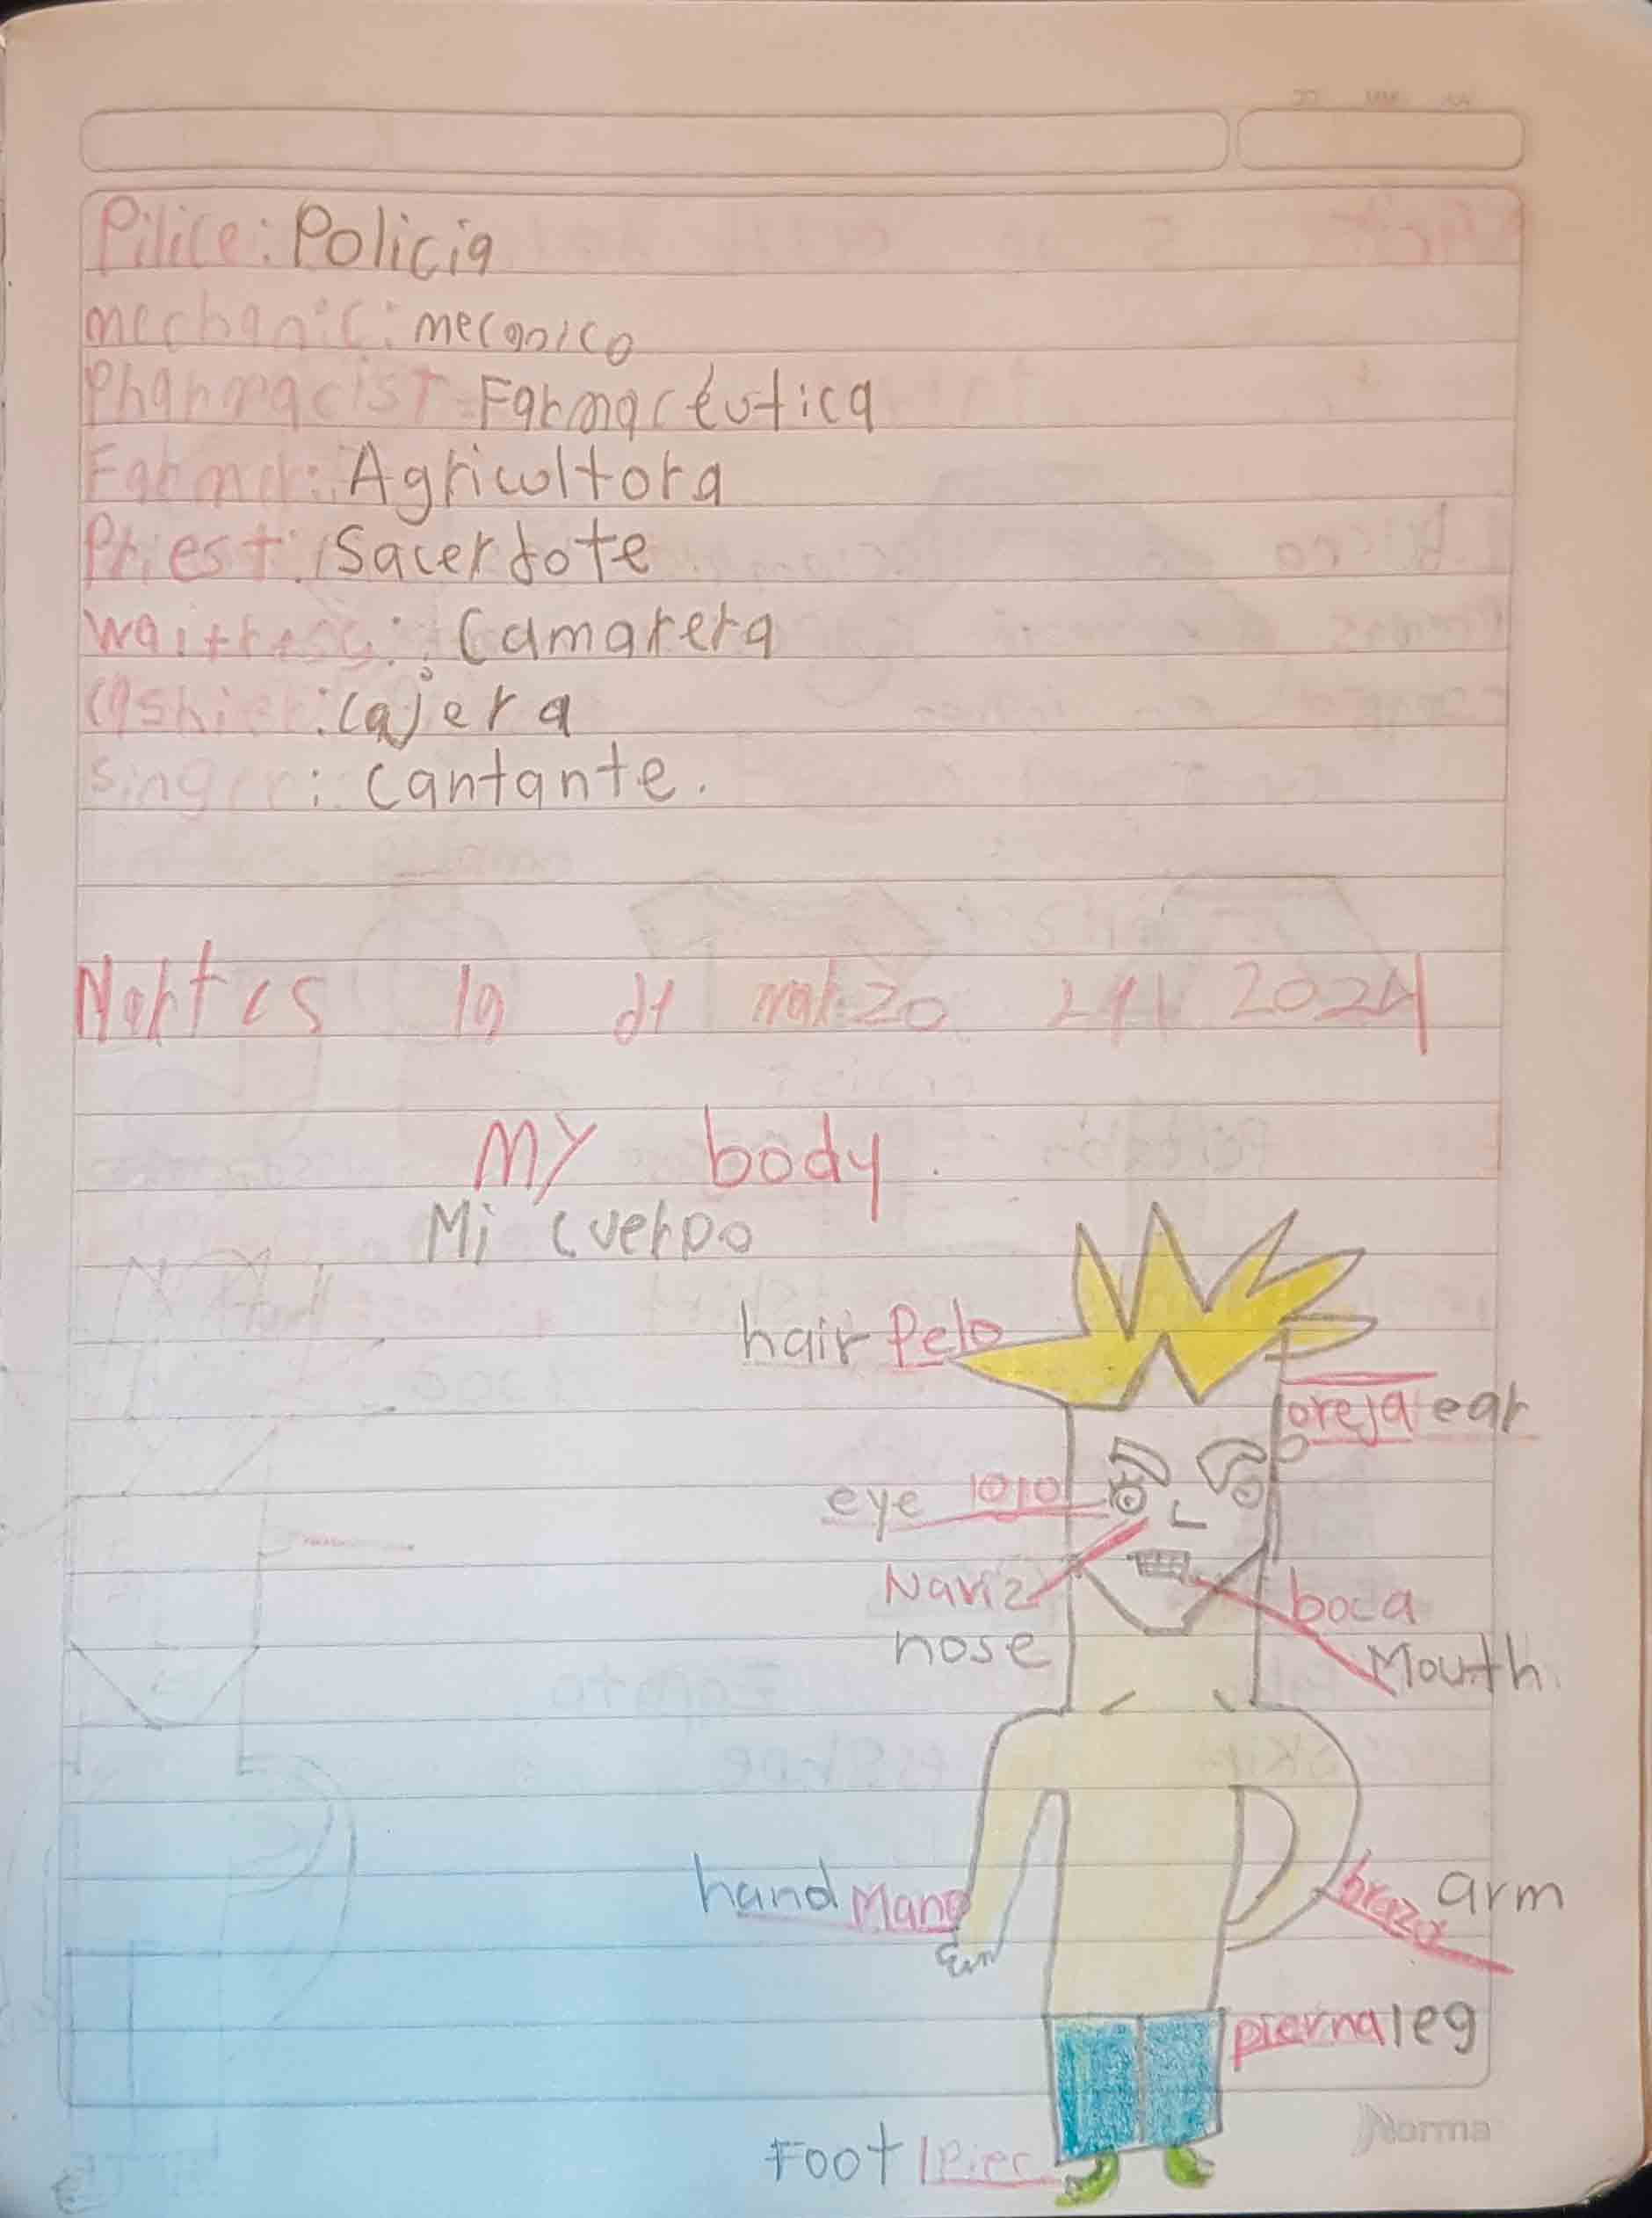 Pilice: Policia
mechanic: mecanico
Pharmacist = Farmacéutica
Farmer: Agricultora
Priest: Sacerdote
Waitress: Camarera
Cashier: cajera
singer: cantante.
19 de marzo 2024
MY body.
Mi cuerpo
hair Pelo
oreja ear
eye ojo
Nariz
nose
boca
Mouth.
hand Mano
brazo arm
pierna leg
FOOT
Norma